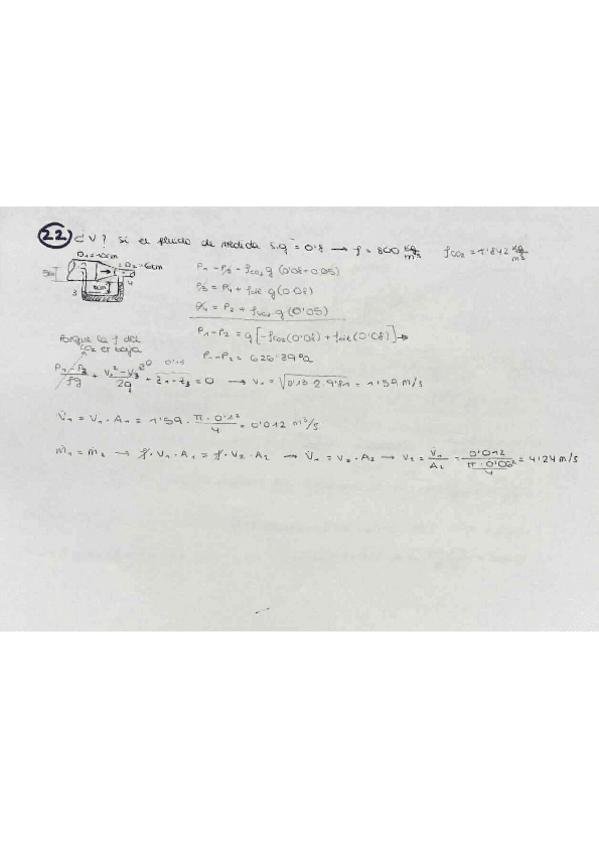 22 ¿V? Si el fluido de medida S.g = 0'8 → ρ = 800 kg/m³ ρCO2 = 1'842 kg/m³
D1=10cm
2 D2=6cm
8cm
3
4
P1 - P3 = ρCO2 g (0'08+0'05)
P3 = P4 + ρair g (0'08)
P4 = P2 + ρCO2 g (0'05)
P1 - P2 = g [-ρCO2 (0'08) + ρair (0'08)] →
P1 - P2 = 626'39 Pa
Porque la ρ del
CO2 es baja
(P1 - P3)/ρg + (V1² - V3²)/2g + z1 - z3 = 0 → V1 = √(0'13·2·9'81) = 1'59 m/s
V̇1 = V1 · A1 = 1'59 · π·0'1²/4 = 0'012 m³/s
ṁ1 = ṁ2 → ρ·V1·A1 = ρ·V2·A2 → V̇1 = V2·A2 → V2 = V̇1/A2 = 0'012/(π·0'06²/4) = 4'24 m/s